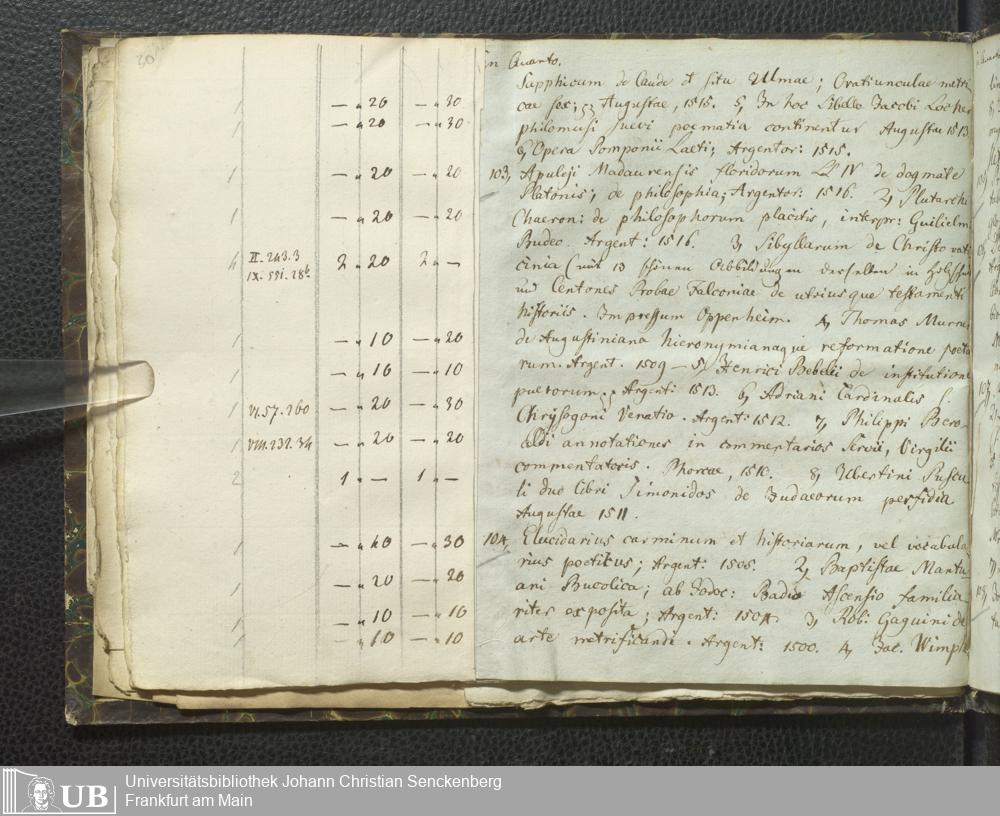 30
1 — " 20 — " 30
1 — " 20 — " 30
1 — " 20 — " 20
1 — " 20 — " 20
4 II. 243. 3 2 " 20 2 " —
IX. 551. 28b
1 — " 10 — " 20
1 — " 10 — " 10
1 VI. 57. 260 — " 20 — " 30
1 VIII. 232. 34 — " 20 — " 20
2 1 " — 1 " —
1 — " 40 — " 30
1 — " 20 — " 20
1 — " 10 — " 10
1 — " 10 — " 10
in Quarto.
Supphicum de laude et situ Ulmae; Oratiunculae metri-
cae Augustae, 1515. 5, In hoc libello Jacobi Locher
philomusi suevi poematia continentur Augustae 1513
6, Opera Pomponii Laeti; Argentor: 1515.
103, Apuleji Madaurensis floridorum LL IV de dogmate
Platonis; de philosophia; Argentor: 1516. 2, Plutarchi
Chaeron: de philosophorum placitis, interpr: Guilielm
Budeo. Argent: 1516. 3, Sibyllarum de Christo vati
cinia (mit 13 schönen Abbildungen derselben in
und Centones Probae Falconiae de utriusque testamenti
historiis. Impressum Oppenheim. 4, Thomas Murner
de Augustiniana hieronymianaque reformatione poeta
rum. Argent. 1509 — 5, Henrici Bebelii de institutione
puerorum. Argent: 1513. 6, Adriani Cardinalis S.
Chrysogoni Venatio. Argent: 1512. 7, Philippi Bero-
aldi annotationes in commentarios Servii, Virgilii
commentatoris. Phorcae, 1510. 8, Ubertini Puscu
li duo libri Simonidos de Judaeorum perfidia
Augustae 1511.
104, Elucidarius carminum et historiarum, vel vocabula
rius poeticus; Argent: 1505. 2, Baptistae Mantu-
ani Bucolica; ab Jodoc: Badio Ascensio familia
riter exposita; Argent: 3, Robi Gaguini de
arte metrificandi. Argent: 1500. 4, Jac. Wimph
UB
Universitätsbibliothek Johann Christian Senckenberg
Frankfurt am Main